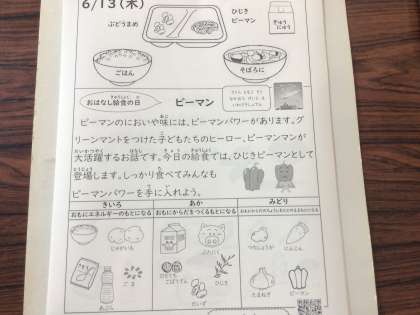 6/13(木)
ぶどうまめ
ひじき
ピーマン
ぎゅうにゅう
ごはん
そぼろに
おはなし給食の日
ピーマン
ピーマンのにおいや味には、ピーマンパワーがあります。グ
リーンマントをつけた子どもたちのヒーロー、ピーマンマンが
大活躍するお話です。今日の給食では、ひじきピーマンとして
登場します。しっかり食べてみんなも
ピーマンパワーを手に入れよう。
きいろ
あか
みどり
おもにエネルギーのもとになる
おもにからだをつくるもとになる
おもにからだのちょうしをととのえるもとになる
じゃがいも
ぶたにく
つきこんにゃく
にんじん
ごま
あぶら
ひじき
だいず
たまねぎ
ピーマン